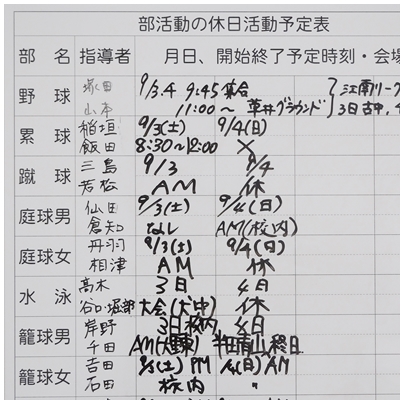 部活動の休日活動予定表
部 名 指導者 月日、開始終了予定時刻・会場
野 球 塚田 9/3.4 9:45 集合 江南リーグ
山本 11:00〜 草井グラウンド 3日古中,
累 球 稲垣 9/3(土) 9/4(日)
飯田 8:30〜12:00 ×
蹴 球 三島 9/3 9/4
若松 AM 休
庭球男 仙田 9/3(土) 9/4(日)
倉知 なし AM(校内)
庭球女 丹羽 9/3(土) 9/4(日)
相津 AM 休
水 泳 高木 3日 4日
谷口・堀部 大会(犬中) 休
籠球男 岸野 3日校内 4日
千田 AM(大東) 半田青山終日
籠球女 吉田 9/3(土) PM 9/4(日) AM
石田 校内 〃